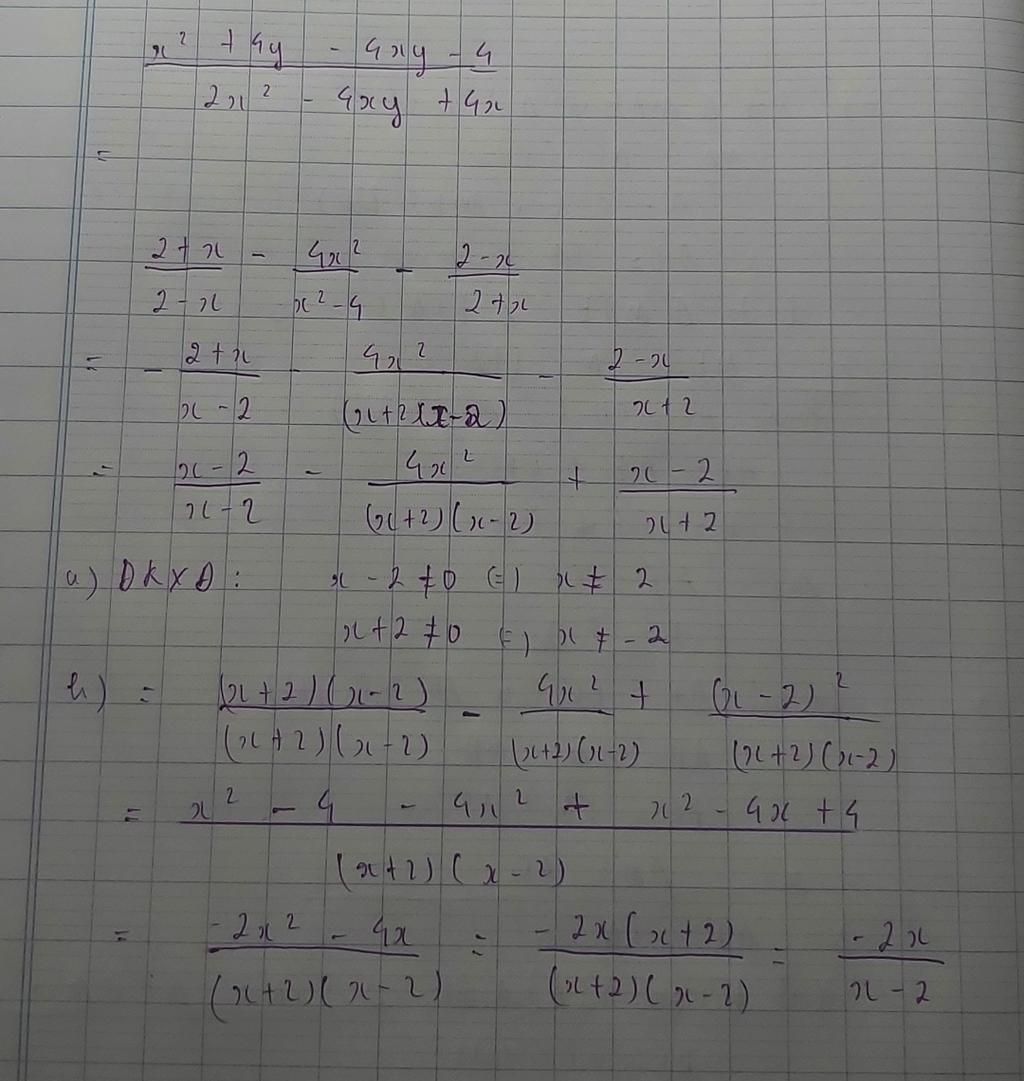 x² + 4y - 4xy - 4
2x² - 4xy + 4x
=
2+x / 2-x - 4x² / x²-4 - 2-x / 2+x
= - 2+x / x-2 - 4x² / (x+2)(x-2) - 2-x / x+2
= x-2 / x-2 - 4x² / (x+2)(x-2) + x-2 / x+2
a) DKXD : x - 2 ≠ 0 (=) x ≠ 2
x+2 ≠ 0 (=) x ≠ -2
b) = (x+2)(x-2) / (x+2)(x-2) - 4x² / (x+2)(x-2) + (x-2)² / (x+2)(x-2)
= x² - 4 - 4x² + x² - 4x + 4
(x+2)(x-2)
= -2x² - 4x / (x+2)(x-2) = -2x(x+2) / (x+2)(x-2) = -2x / x-2